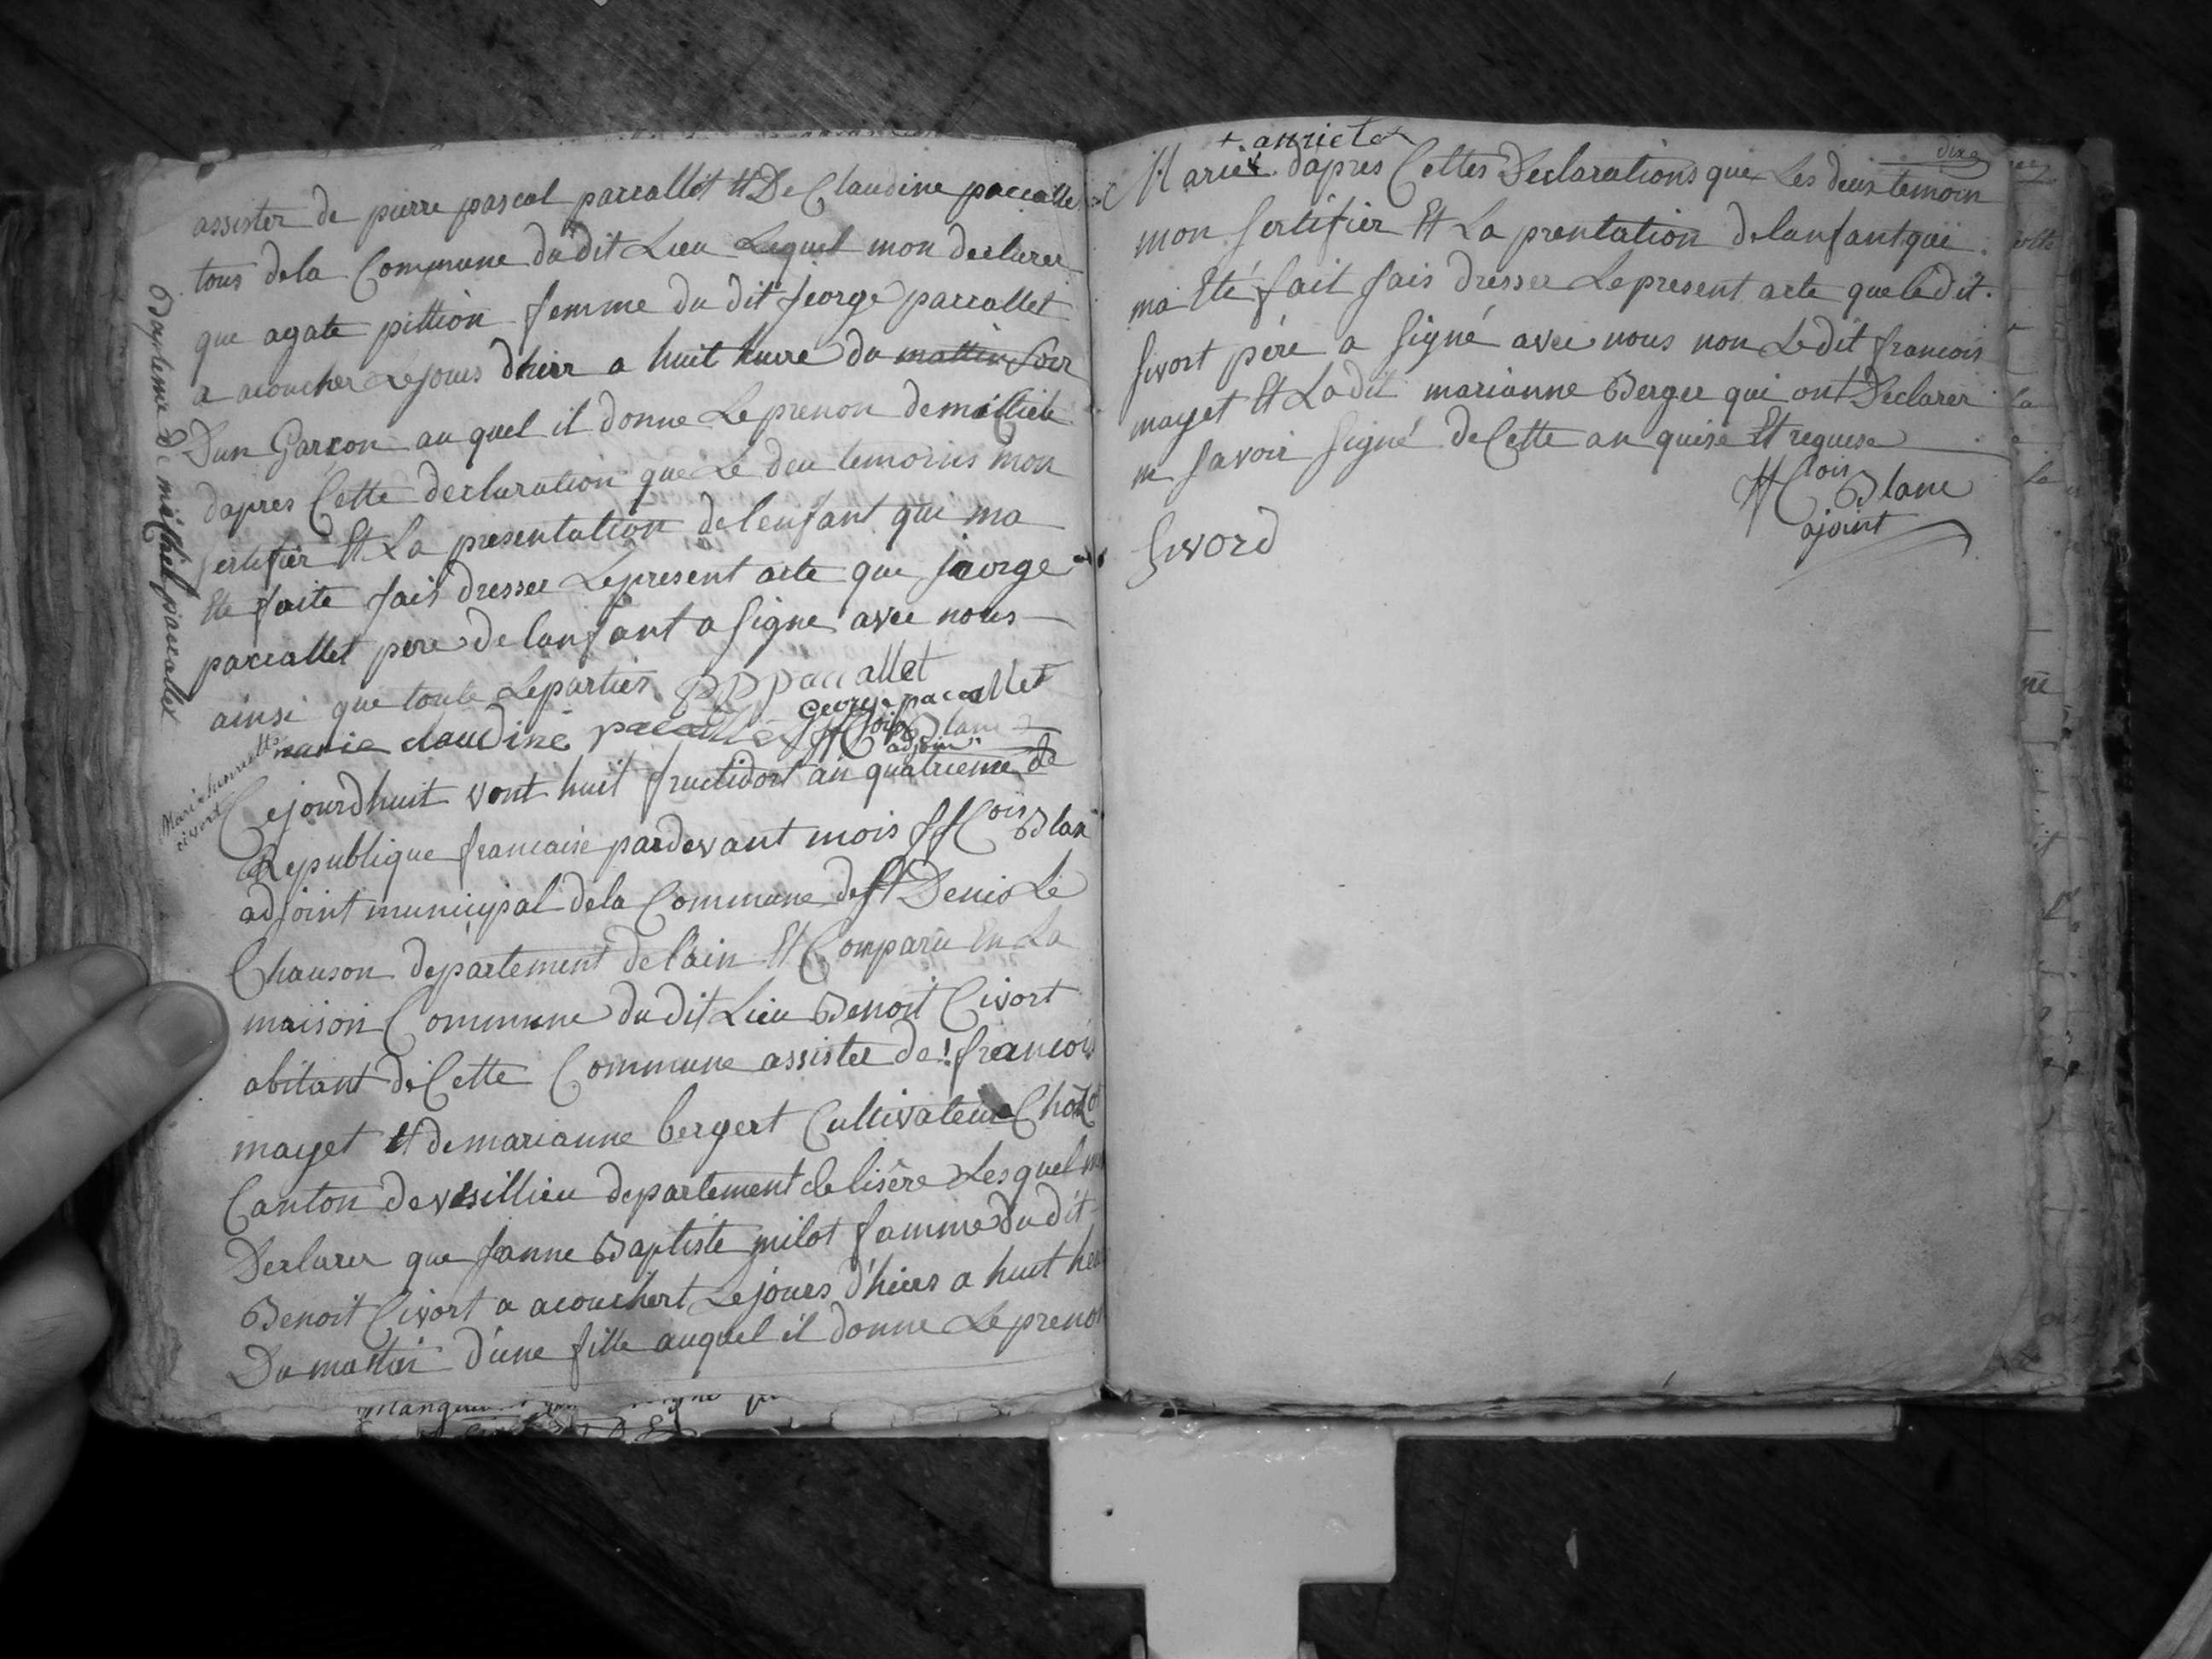 assister de pierre pascal paccallet et De Claudine paccalle
tous dela Commune du dit Lieu Lequel mon declarer
que agate pittion femme du dit jeorge paccallet
a acoucher Lejours dhier a huit heure du mattin soir
Dun Garcon au quel il donne Le prenon de michele
dapres Cette declaration que Le deu temoins mon
sertifier Et La presentation delenfant qui ma
Ete faite fais dresser Lepresent acte que jeorge
paccallet pere de lanfant a signe avec nous
ainsi que toute Leparties PP paccallet
george paccallet
marie claudine paccallet ffCois Blanc
adjoin
Baptême De michel paccallet
Marie henriette
civort
Cejourdhuit vent huit fructidort an quatrieme de
La Republique francaise pardevant mois ffCois Blan
adjoint municipal dela Commune de St Denis Le
Chauson departement de lain Et Comparu En La
maison Commune du dit Lieu Benoit Civort
abitant de Cette Commune assister de francois
mayet et de marianne bergert Cultivateur
Canton de vesillieu departement de lisère Lesquel
Declarer que Janne Baptiste milot famme du dit
Benoit Civort a acouchert Lejours d'hiers a huit heu
Du mattin d'une fille auquel il donne Le prenon
+ anriete
Marie + dapres Cettes Declarations que Les deus temoin
mon sertifier Et La prentation delanfant qui
ma Eté fait fais dresser Lepresent acte que ledit
Sivort pére a signé avec nous non Ledit francois
mayet Et Ladit marianne Berger qui ont Declarer
ne savoir signé de Cette an quise Et requise
ffCois Blanc
ajoint
Sivord